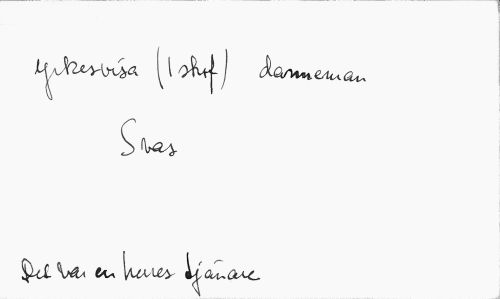 yrkesvisa (1 skrf) danneman
Svar
Det var en herres tjänare